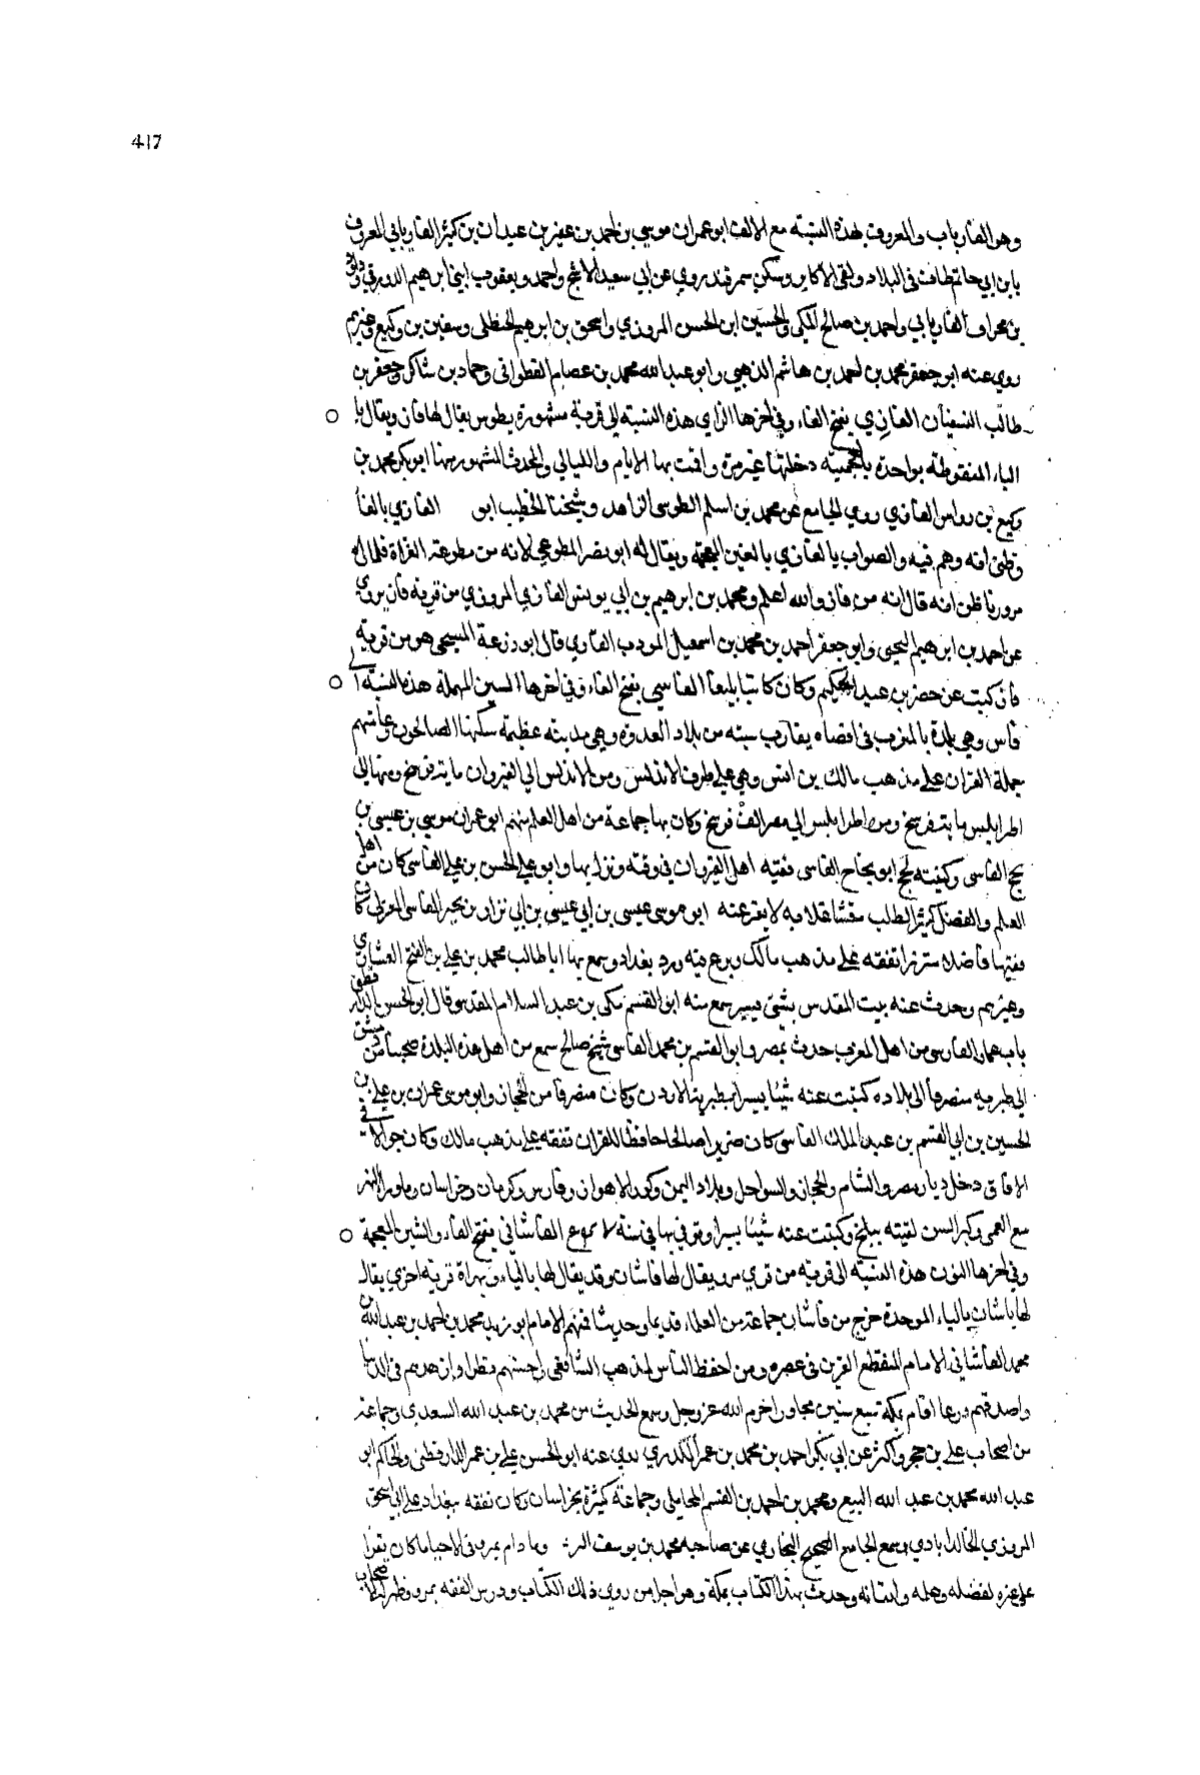 417
وهو الفارياب والمعروف بهذه النسبة مع الالف ابو عمران موسي بن احمد بن عفير بن عبدان بن كثير الفاريابي المعروف
بابن ابي حاتم طاف في البلاد ولقي الاكابر وسكن سمرقند روي عن ابي سعيد الاشج واحمد ويعقوب ابني ابرهيم الدورقي وداود
بن محراف الفاريابي واحمد بن صالح المكي والحسين ابن الحسن المروزي واسحق بن ابرهيم الحنظلي وسفين بن وكيع وغيرهم
روي عنه ابو جعفر محمد بن احمد بن هاشم الذهبي وابو عبد الله محمد بن عصام القطواني وحماد بن شاكر وجعفر بن
طالب النسفيان الفازي بفتح الفاء وفي اخرها الزاي هذه النسبة الي قرية مشهورة بطوس يقال لها فاز ويقال با
الباء المنقوطة بواحدة بالعجمية دخلتها غير مرة واقمت بها الايام والليالي والمحدث المشهور منها ابو بكر محمد بن
وكيع بن رواس الفازي روي الجامع عن محمد بن اسلم الطوسي الزاهد وشيخنا الخطيب ابو الفازي بالفا
وظني انه وهم فيه والصواب بالغازي بالغين المعجمة ويقال له ابو نصر المطوعي لانه من مطوعة الغزاة فلما
مرورنا ظن انه قال انه من فاز والله اعلم ومحمد بن ابرهيم بن ابي يونس الفازي المروزي من قرية فاز يروي
عن احمد بن ابرهيم وابو جعفر احمد بن محمد بن اسمعيل المودب الفازي قال ابو زرعة المسيحي هو من قرية
فاز كتبت عن بن عبد الحكيم وكان كاتبا بليغا الفاسي بفتح الفاء وفي اخرها السين المهملة هذه النسبة الي
فاس وهي بلدة بالمغرب في اقصاه يقارب سبته من بلاد العدوه وهي مدينة عظيمة سكنها الصالحون وعامتهم
حملة القران علي مذهب مالك بن انس وهي علي طرف الاندلس ومن الاندلس الي القيروان مايتا فرسخ ومنها الي
اطرابلس مايتا فرسخ ومن اطرابلس الي مصر الف فرسخ وكان بها جماعة من اهل العلم منهم ابو عمران موسي بن عيسي بن
نجح الفاسي وكنيته نجح ابو نجاح الفاسي فقيه اهل القيروان في وقته ونزل بها وابو علي الحسن بن علي الفاسي كان من اهل
العلم والفضل كثير الطلب ابو موسي عيسي بن ابي عيسي بن ابي نزار بن بحير الفاسي المغربي كان
فقيها فاضلا تفقه علي مذهب مالك وبرع فيه ورد بغداد وسمع بها ابا طالب محمد بن علي بن الفتح العشاري
وغيرهم وحدث عنه بيت المقدس بشي يسير سمع منه ابو القسم مكي بن عبد السلام المقدسي وقال ابو الحسن الدارقطني
باب عمار الفارسي من اهل المغرب حدث بمصر وابو القسم بن محمد الفاسي شيخ صالح سمع من اهل هذه البلدة صحبنا من دمشق
الي طبريه منصرفا الي بلاده كتبت عنه شيئا يسيرا بطبرية الاردن وكان منصرفا من الحجاز وابو موسي عمران بن علي بن
الحسين بن ابي القسم بن عبد الملك الفاسي كان ضريرا صالحا حافظا للقران تفقه علي مذهب مالك وكان جوالا في
الافاق دخل ديار مصر والشام والحجاز والسواحل وبلاد اليمن وكور الاهواز وفارس وكرمان وخراسان وماورا النهر
مع العمي وكبر السن لقيته ببلخ وكتبت عنه شيئا يسيرا وتوفي بها في سنة الفاشاني بفتح الفاء والشين المعجمة
وفي اخرها النون هذه النسبة الي قرية من قري مرو يقال لها فاشان وقد يقال لها بالباء وبهراة قرية اخري يقال
لها باشان بالباء الموحدة خرج من فاشان جماعة من العلماء قديما وحديثا فمنهم الامام ابو زيد محمد بن احمد بن عبد الله بن
محمد الفاشاني الامام المنقطع القرين في عصره ومن احفظ الناس لمذهب الشافعي واحسنهم نظرا وازهدهم في الدنيا
واصدقهم ورعا اقام بمكة سبع سنين مجاورا لحرم الله عز وجل وسمع الحديث من محمد بن عبد الله السعدي وجماعة
من اصحاب علي بن حجر واكثر عن ابي بكر احمد بن محمد بن عمر المنكدري روي عنه ابو الحسن علي بن عمر الدارقطني والحاكم ابو
عبد الله محمد بن عبد الله البيع ومحمد بن احمد بن القسم المحاملي وجماعة كثيرة بخراسان وكان تفقه ببغداد علي ابي اسحق
المروزي الخالدابادي وسمع الجامع الصحيح للبخاري عن صاحبه محمد بن يوسف وما دام بمرو في الاحيا ما كان يقرا
علي غيره لفضله وعلمه واتقانه وحدث بهذا الكتاب بمكة وهو اجل من روي ذلك الكتاب ودرس الفقه بمرو وظهر له اصحاب